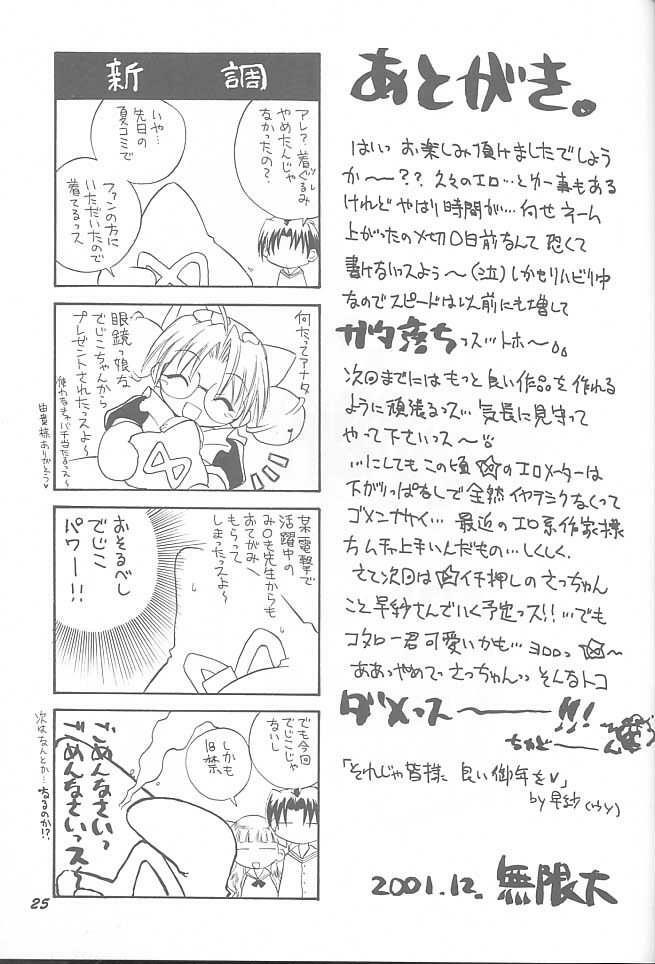 あとがき。
はいっ お楽しみ頂けましたでしょう
か〜〜?? 久々のエロ…とゆー事もある
けれど やはり時間が… 何せネーム
上がったの〆切〇日前なんて 恐くて
書けないっスよう〜(泣)しかもリハビリゆ
なのでスピードは以前にも増して
ガタ落ちっスットホ〜
次回までにはもっと良い作品を作れる
ように頑張るっス… 気長に見守って
やって下さいっス〜
…にしてもこの頃 のエロメーターは
下がりっぱなしで全然イヤラシクなくって
ゴメンナサイ… 最近のエロ系作家様
ムチャ上手いんだもの…しくしく。
さて次回は イチ押しのさっちゃん
こと早紗さんでいく予定っス!!…でも
コタロー君可愛いかも…ヨロロっ 〜
ああっやめてっ さっちゃんっっ そんなトコ
ダメっス〜〜!!!
ちゅど〜〜ん
「それじゃ皆様 良い御年を
by 早紗(ウソ)
2001.12. 無限大
新調
アレ?着ぐるみ
やめたんじゃ
なかったの?
いや…
先日の
夏コミで
ファンの方に
いただいたので
着てるっス
何たってアナタ
眼鏡っ娘な
でじこちゃんから
プレゼントされたっスよ〜
使わなきゃバチ当たるっス〜
由貴様ありがとう
某電撃で
活躍中の
み〇も先生からも
おてがみ
もらって
しまったっスよ〜
おそるべし
でじこ
パワー!!
でも今回
でじこじゃ
ないし
しかも
18禁
ごめんなさいっ
ごめんなさいっス
次はなんとか…なるのか!?
25